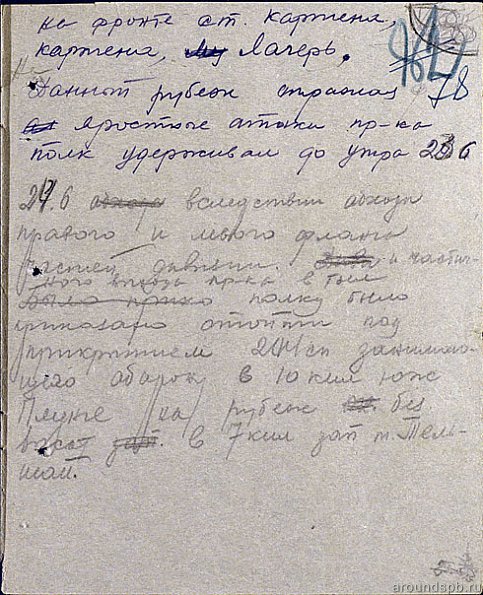 на фронте ст. Картена,
Картена, Лагерь.
78
Данный рубеж отражая
яростные атаки пр-ка
полк удерживал до утра 23 6
24.6 обхода вследствии обхода
правого и левого фланга
частей дивизии. и частич-
ного выхода пр-ка в тыл
было полку было
приказано отойти под
прикрытием 204 сп занимаю-
щего оборону в 10 клм юж
Плунге на рубеж без.
высот зап. в 7 клм зап м. Тель-
шай.
aroundspb.ru